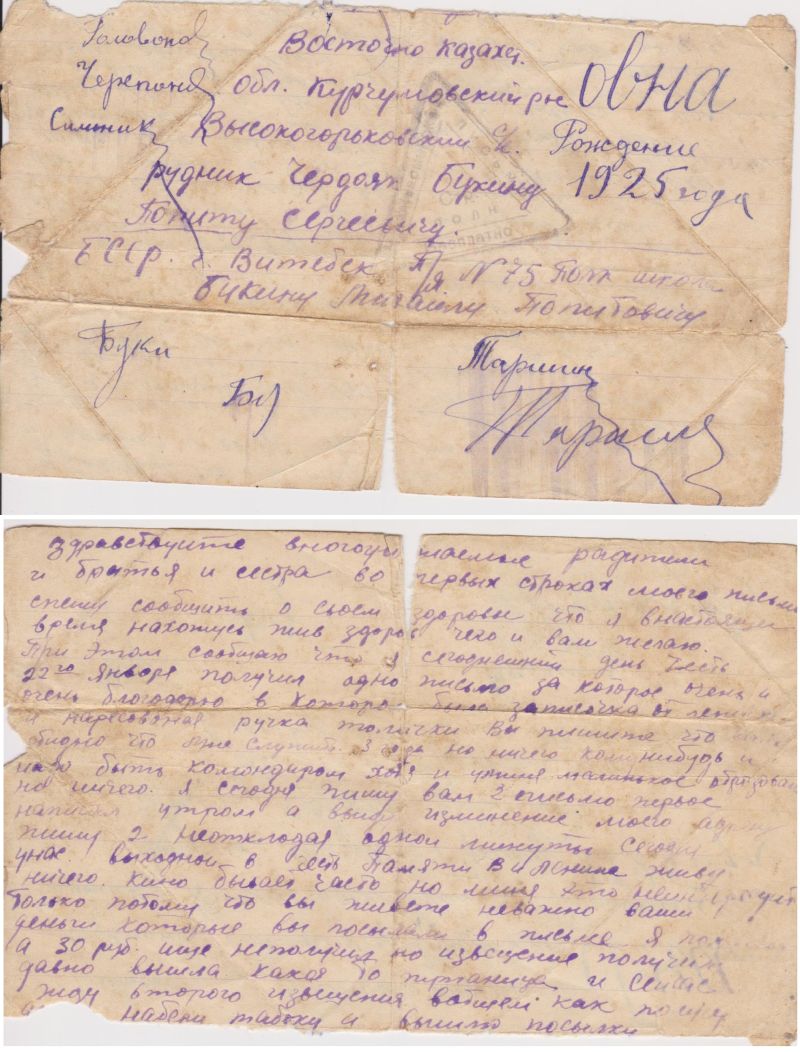 Головоно
Черепоно
Сашник
Восточно казахс.
обл. Курчумовский р-н
овна
Высокогорьковский с/с.
Рождение
рудник Чердояк Букину
1925 года
Попиту Сергеевичу.
БССР. г. Витебск п/я. N 75 Полк школа
Букину Михаилу Попитовичу
Буки
Бу
Таршин
Здравствуите вногоуважаемые радители
и братья и сестра во первых строках моего письма
спешу сообщить о своем здоровьи что я внастоящее
время нахожусь жив здоров чего и вам желаю.
При этом сообщаю что я сегоднешний день
22го января получил одно письмо за которое очень и
очень благодарю в которо была записочка от
и наресованая ручка Вы пишите что
обидно что уже служит 3 года но ничего комунибудь и
надо быть командиром хотя и уменя маленькое образован
но ничего. Я сегодня пишу вам 2 письмо первое
написал утром а изминение моего адреса
пишу 2 неотклодая одной минуты Сегодня
унас выходной в честь Памяти В И Ленина живу
ничего. Кино бывает часто но миня это неинтересует
только потому что вы живете неважно ваши
деньги которые вы посылали в письме я
а 30 руб. ище неполучил но извещение получил
давно вышла какая то путаница и сейчас
жду второго извещения вобщем как получу
табаку и вышлю посылки